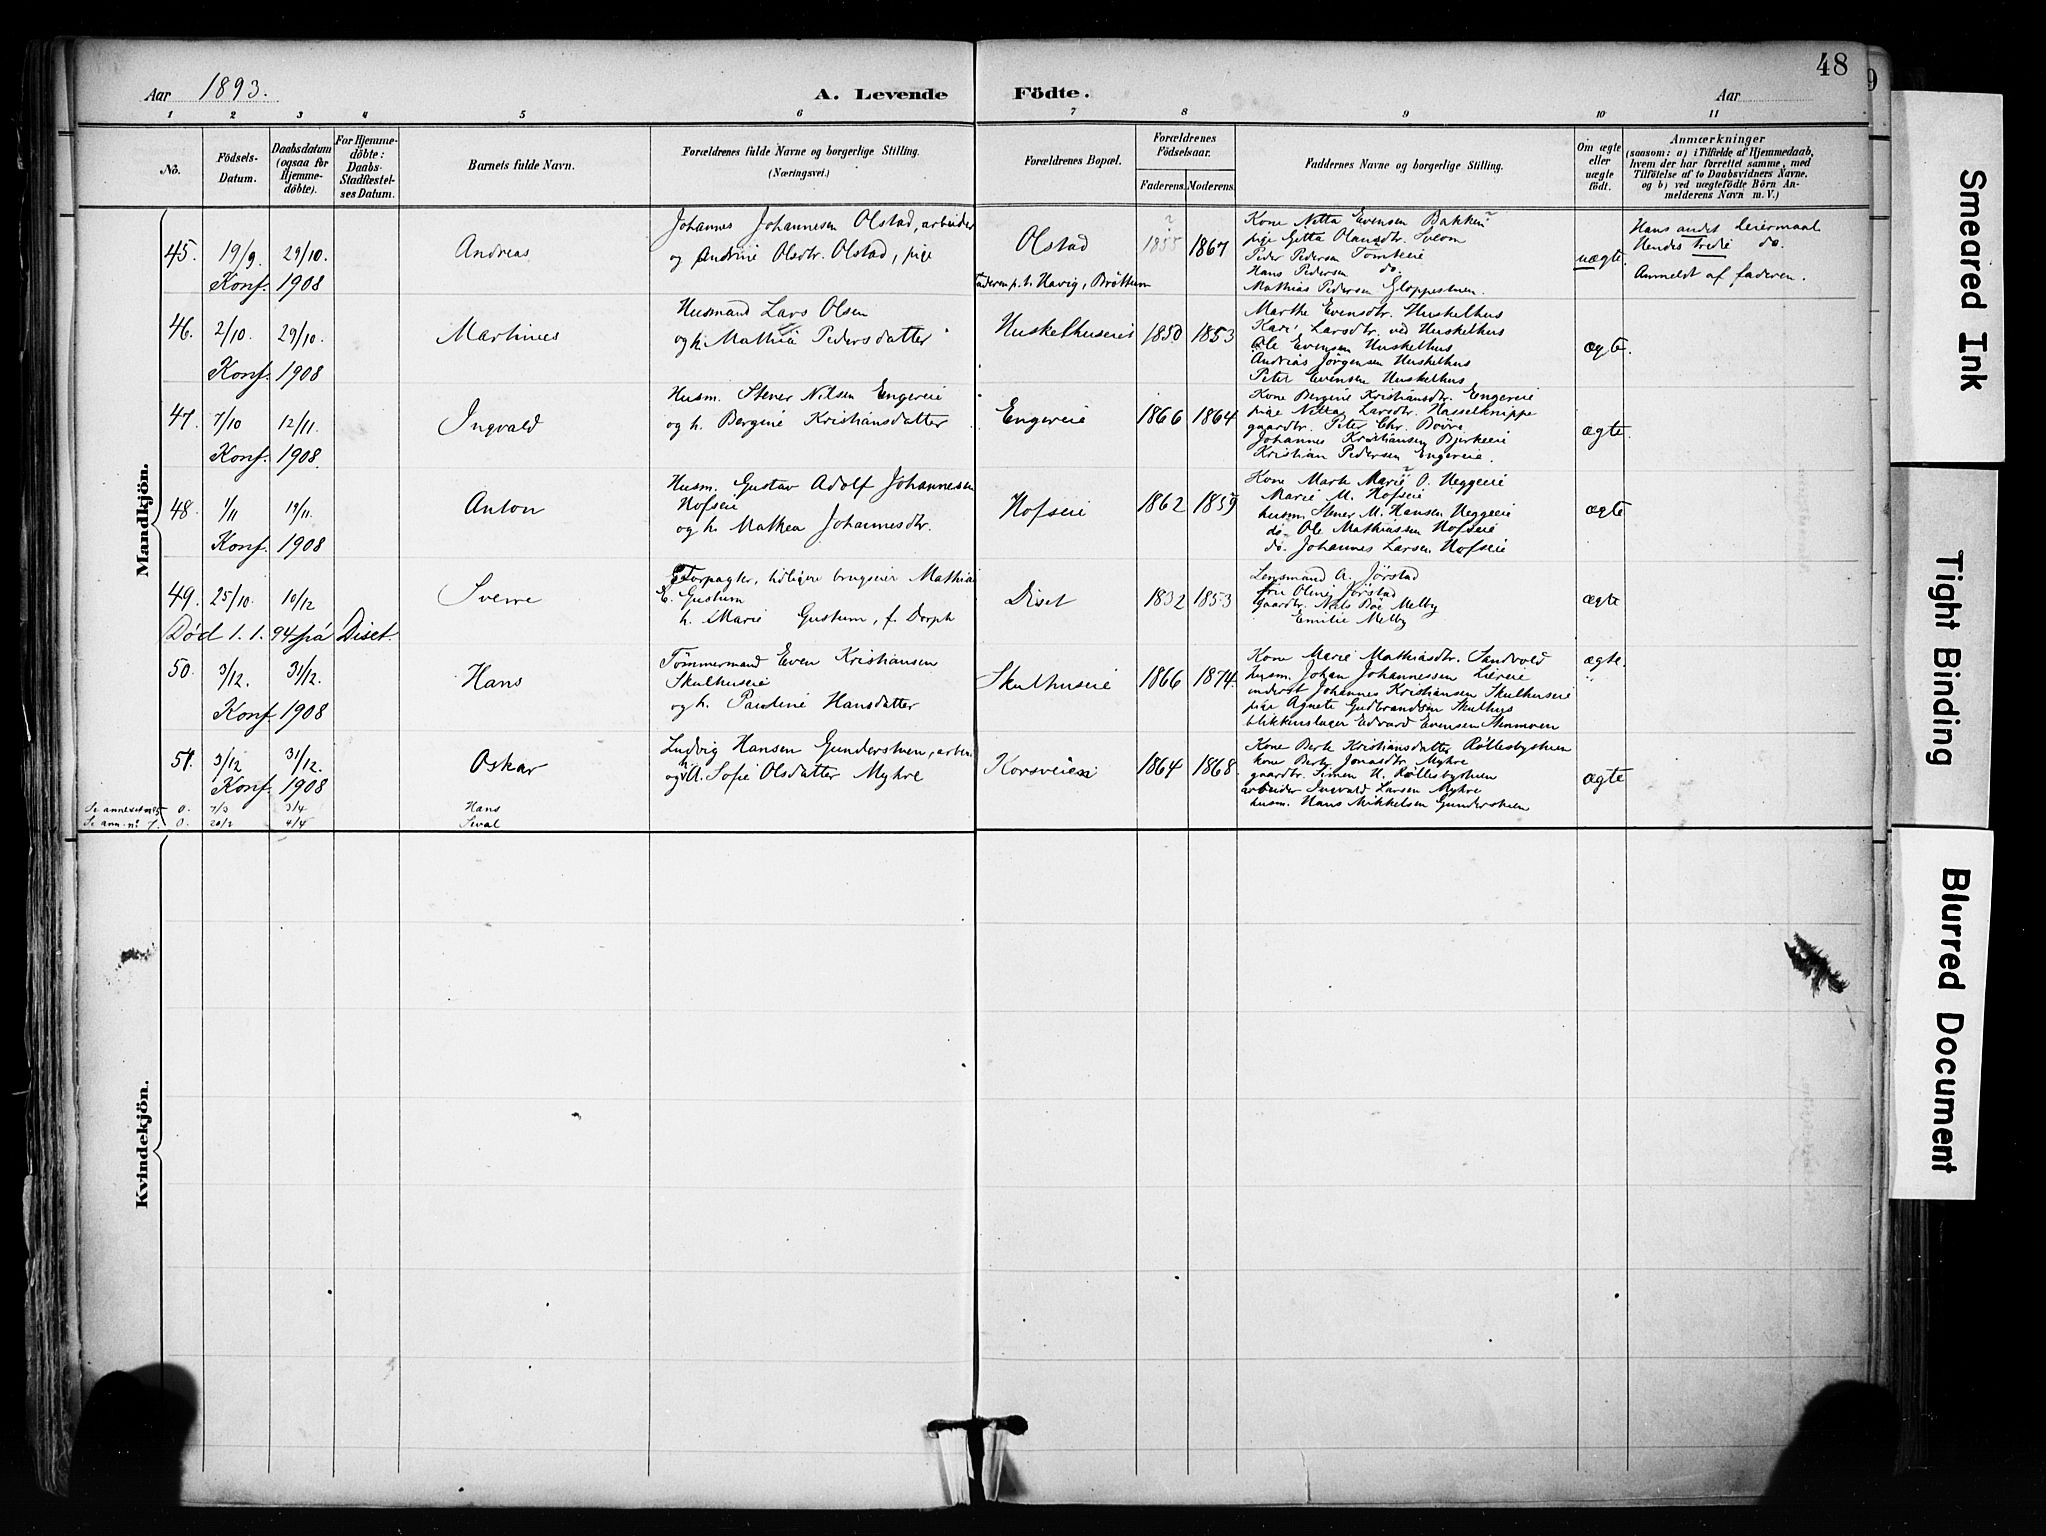 48
Aar 1893.
A. Levende Födte.
Aar
1 2 3 4 5 6 7 8 9 10 11
No.
Födsels-Datum.
Daabsdatum (ogsaa for Hjemme-döbte).
For Hjemme-döbte: Daabs-Stadfæstel-ses Datum.
Barnets fulde Navn.
Forældrenes fulde Navne og borgerlige Stilling.
(Næringsvei.)
Forældrenes Bopæl.
Forældrenes Födselsaar.
Faderens. Moderens.
Faddernes Navne og borgerlige Stilling.
Om ægte eller uægte födt.
Anmærkninger
(saasom: a) i Tilfælde af Hjemmedaab,
hvem der har forrettet samme, med
Tilföielse af to Daabsvidners Navne.
og b) ved uægtefödte Börn An-
melderens Navn m. V.)
Mandkjön.
45. 19/9. 29/10. Andreas
Konf. 1908
Johannes Johannesen Olstad, arbeider
og Andrine Olsdtr. Olstad, pige
Olstad
Faderen p. t. Havig, Bröttum
1855 1867
Kone Netta Evensen Bakken
pige Gitta Olausdtr. Sveom
Peder Pedersen Tömteeie
Hans Pedersen do.
Mathias Pedersen Gloppestuen.
uægte.
Hans andet leiermaal
Hendes tredie do.
Anmeldt af faderen.
46. 2/10. 29/10. Martinus
Konf. 1908
Husmand Lars Olsen
og h. Mathia Pedersdatter
Huskelhuseie
1850 1853
Marthe Evensdtr. Huskelhus
Kari Larsdtr. ved Huskelhus
Ole Evensen Huskelhus
Andreas Jörgensen Huskelhus
Peter Evensen Huskelhus
ægte.
47. 7/10 12/11. Ingvald
Konf. 1908.
Husm. Stener Nilsen Engereie
og h. Bergine Kristiansdatter
Engereie
1866 1864
Kone Bergine Kristiansdtr. Engereie
pige Netta Larsdtr. Hasselknippe
gaardbr. Peter Chr. Bövre
Johannes Kristiansen Bjerkeeie
Kristian Pedersen Engereie.
ægte.
48. 1/11 19/11. Anton
Konf. 1908
Husm. Gustav Adolf Johannesen
Hofseie
og h. Mathea Johannesdtr.
Hofseie
1862 1859
Kone Marte Marie O. Heggeeie
Marie M. Hofseie
husm. Stener M. Hansen Heggeeie
do. Ole Mathiassen Hofseie
do. Johannes Larsen Hofseie
ægte
49. 25/10. 10/12 Sverre
Död 1. 1. 94 på Diset.
Forpagter, tidligere brugseier Mathias
E. Gustum
h. Marie Gustum, f. Dorph
Diset
1832 1853
Lensmand A. Jörstad
fru Oline Jörstad
Gaardbr. Nils Böe Melby
Emilie Melby
ægte
50. 3/12. 31/12. Hans
Konf. 1908
Tömmermand Even Kristiansen
Skulhuseie
og h. Pauline Hansdatter
Skulhuseie
1866 1874.
Kone Marie Mathiasdtr. Sandvold
husm. Johan Johannessen Liereie
inderst Johannes Kristiansen Skulhuseie
pige Agnete Gudbrandsen Skulhus
blikkenslager Edvard Evensen Stenmoen
ægte.
51. 3/12 31/12. Oskar
Konf. 1908
Ludvig Hansen Gunderstuen, arbeider
og h. A. Sofie Olsdatter Myhre
Korsveien
1864 1868.
Kone Berte Kristiansdatter Röllesbystuen
kone Berte Jonasdtr. Myhre
gaardbr. Simen H. Röllesbystuen
arbeider Ingvald Larsen Myhre
husm. Hans Mikkelsen Gunderstuen
ægte
Se annexet nr. 5 0. 7/3 3/4 Hans
Se ann. nr. 7. 0. 20/2 4/4 Sevat
Kvindekjön.
Smeared Ink
Tight Binding
Blurred Document